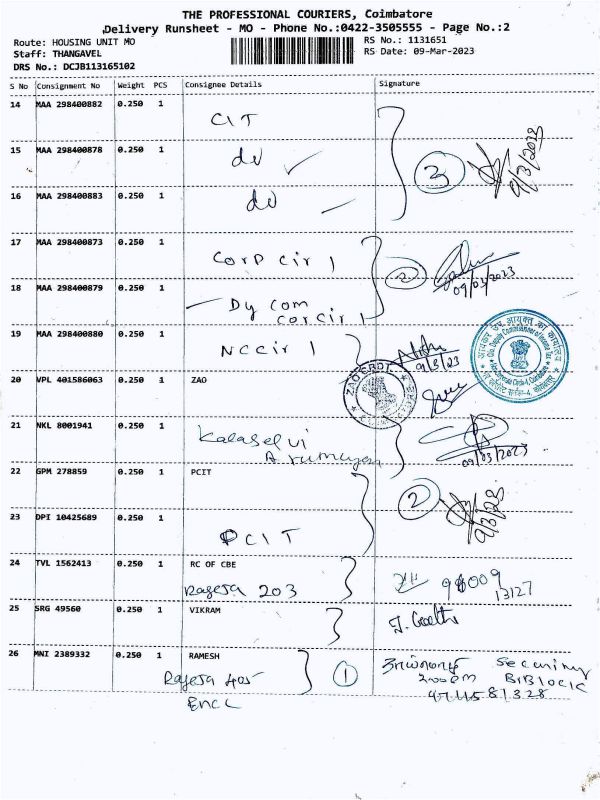 THE PROFESSIONAL COURIERS, Coimbatore
Delivery Runsheet - MO - Phone No.:0422-3505555 - Page No.:2
Route: HOUSING UNIT MO
RS No.: 1131651
Staff: THANGAVEL
RS Date: 09-Mar-2023
DRS No.: DCJB113165102
S No Consignment No Weight PCS Consignee Details Signature
14 MAA 298400882 0.250 1
CIT
15 MAA 298400878 0.250 1
do
3
9/3/2023
16 MAA 298400883 0.250 1
do
17 MAA 298400873 0.250 1
Corp Cir 1
2
09/03/2023
18 MAA 298400879 0.250 1
Dy Com
Cor Cir 1
19 MAA 298400880 0.250 1
NC Cir 1
9/3/23
20 VPL 401586063 0.250 1 ZAO
21 NKL 8001941 0.250 1
Kalaselvi
09/03/2023
22 GPM 278859 0.250 1 PCIT
2
9/3/23
23 DPI 10425689 0.250 1
PCIT
24 TVL 1562413 0.250 1 RC OF CBE
203
13127
25 SRG 49560 0.250 1 VIKRAM
26 MNI 2389332 0.250 1 RAMESH
405
1
Security